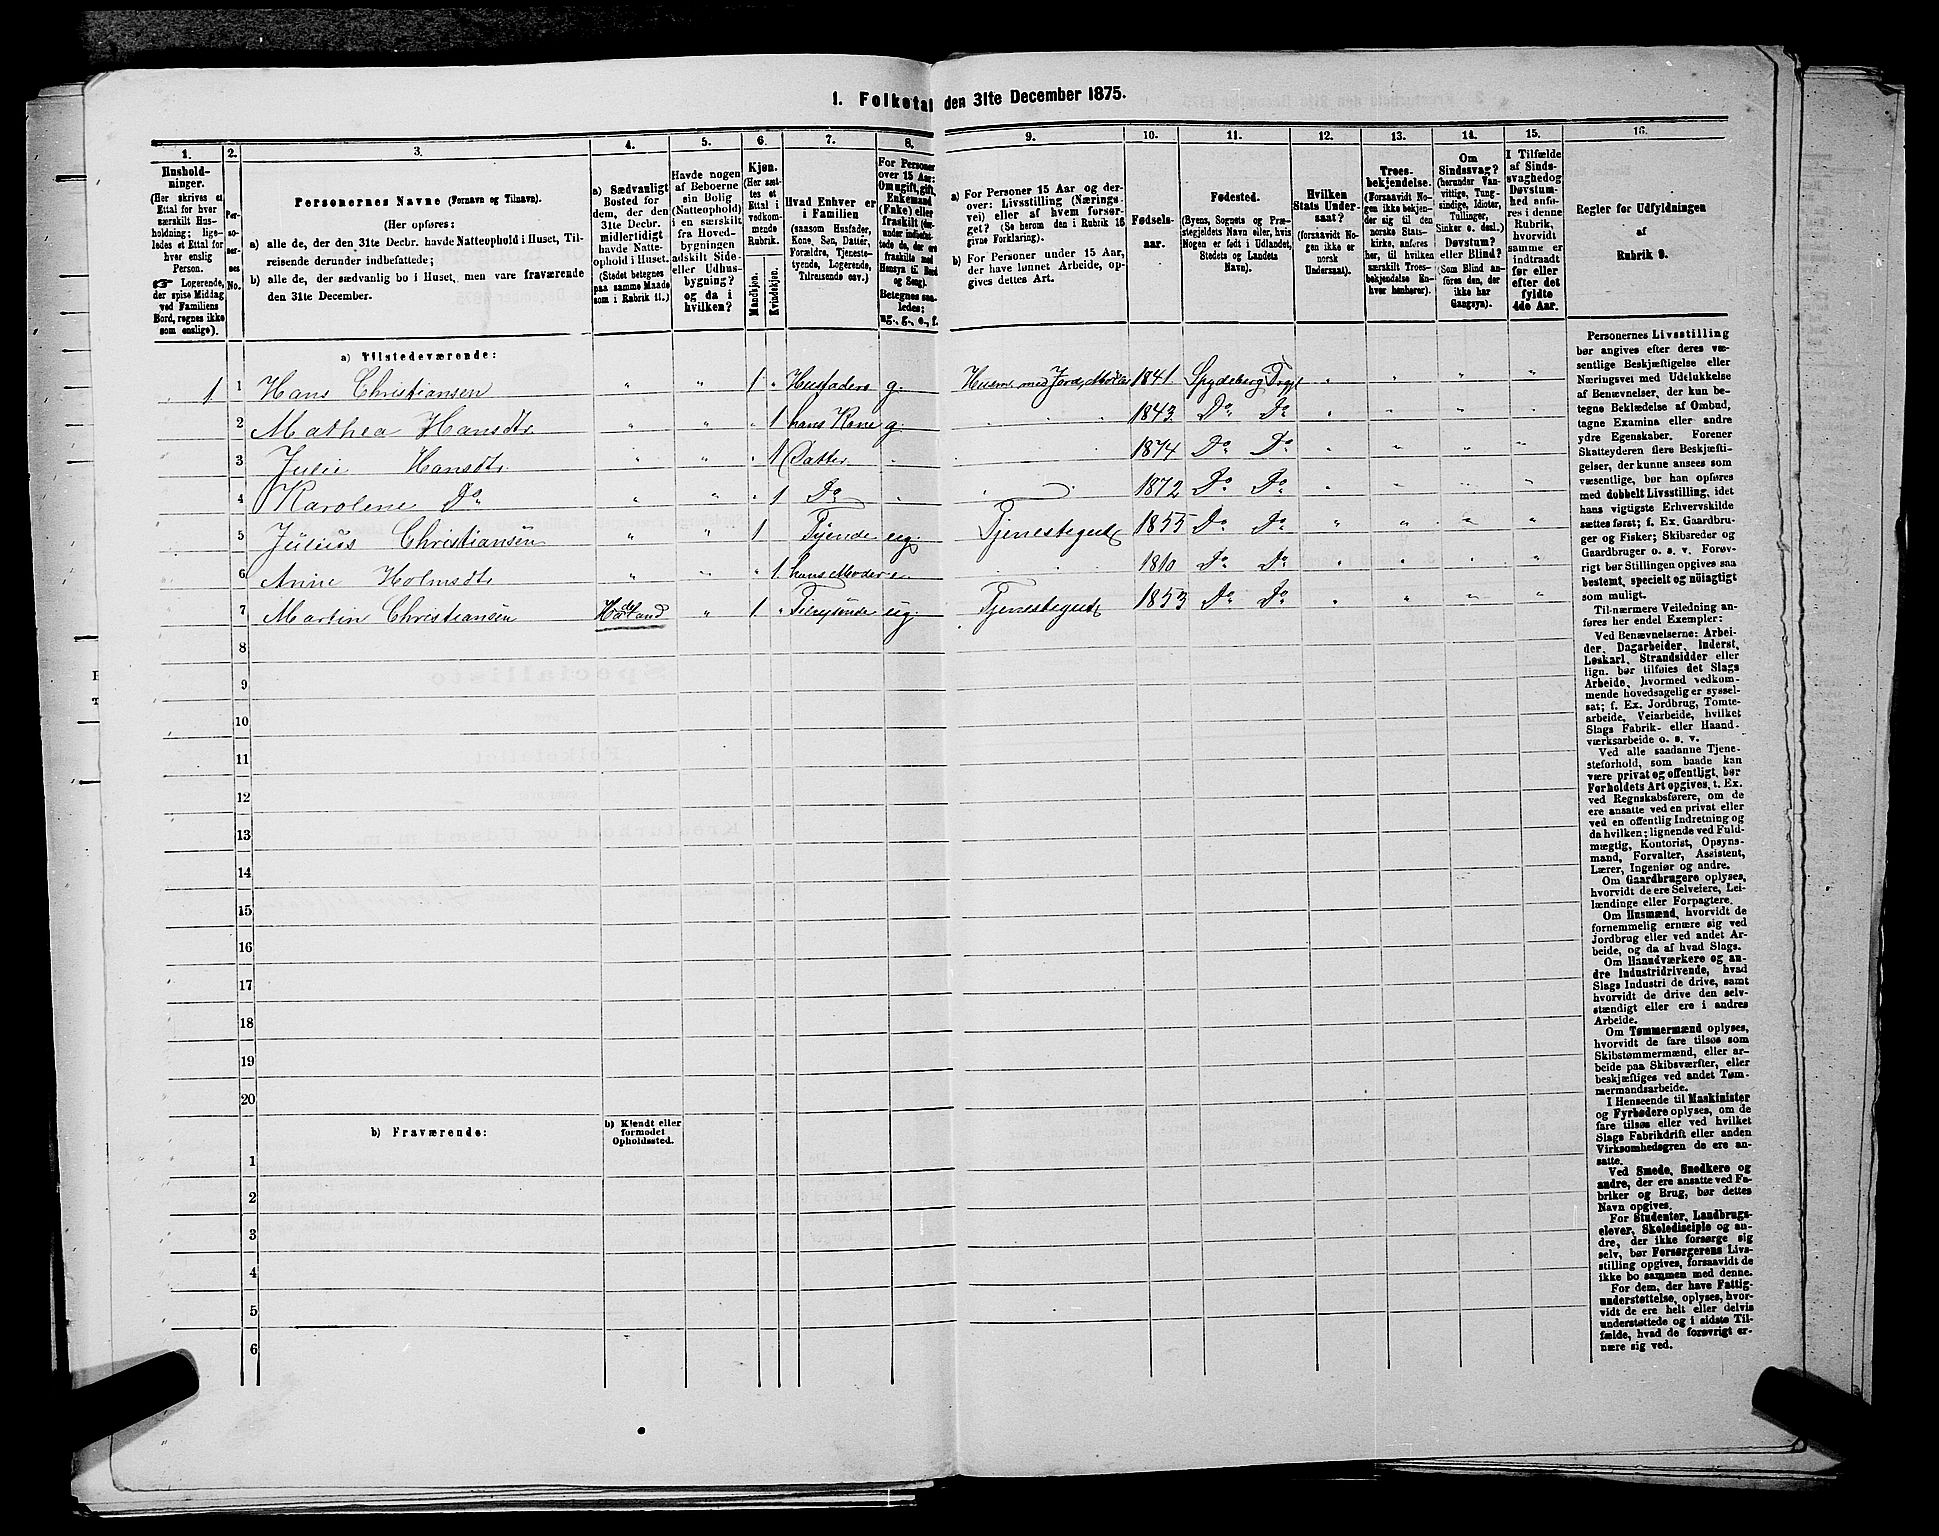 1. Folketal den 31te December 1875.
1. 2. 3. 4. 5. 6. 7. 8. 9. 10. 11. 12. 13. 14. 15. 16.
Husholdninger.
(Her skrives et
Ettal for hver
særskilt Husholdning;
ligeledes et Ettal for
hver enslig
Person.
☛ Logerende,
der spise Middag
ved Familiens
Bord, regnes ikke
som enslige).
Personernes No.
Personernes Navne (Fornavn og Tilnavn).
(Her opføres:
a) alle de, der den 31te Decbr. havde Natteophold i Huset, Tilreisende
derunder indbefattede;
b) alle de, der sædvanlig bo i Huset, men vare fraværende
den 31te December.
a) Sædvanligt
Bosted for
dem, der den
31te Decbr.
midlertidigt
havde Natteophold
i Huset.
(Stedet betegnes
paa samme Maade
som i Rubrik 11.)
Havde nogen
af Beboerne
sin Bolig
(Natteophold)
i en særskilt
fra Hovedbygningen
adskilt Side- eller
Udhusbygning?
og da i
hvilken?
Kjøn.
(Her sættes
et
Ettal i
vedkommende
Rubrik.
Mandkjøn.
Kvindekjøn.
Hvad Enhver er
i Familien
(saasom Husfader,
Kone, Søn, Datter,
Forældre, Tjenestetyende,
Logerende,
Tilreisende osv.)
For Personer
over 15 Aar:
Om ugift, gift,
Enkemand
(Enke) eller
fraskilt (derunder
indbefattede de, der ere
fraskilte med
Hensyn til Bord
og Seng).
Betegnes saaledes:
ug., g., e., f.
a) For Personer 15 Aar og derover:
Livsstilling (Næringsvei)
eller af hvem forsørget?
(Se herom den i Rubrik 16
givne Forklaring).
b) For Personer under 15 Aar,
der have lønnet Arbeide, opgives
dettes Art.
Fødselsaar.
Fødested.
(Byens, Sognets og Præstegjeldets
Navn eller, hvis
Nogen er født i Udlandet,
Stedets og Landets
Navn).
Hvilken
Stats Undersaat?
(forsaavidt Nogen
ikke er
norsk
Undersaat).
Troesbekjendelse.
(Forsaavidt Nogen
ikke bekjender
sig til den
norske Statskirke,
anføres
her, til hvilken
særskilt Troesbekjendelse
Enhver
henhører).
Om
Sindssvag?
(herunder Vanvittige,
Tungsindige, Idioter,
Tullinger,
Sinker o. desl.)
Døvstum?
eller Blind?
(Som Blind anføres
den, der
ikke har
Gangsyn).
I Tilfælde
af Sindssvaghed
og
Døvstumhed
anføres
i denne
Rubrik,
hvorvidt
samme er
indtraadt
før eller
efter det
fyldte
4de Aar.
Regler for Udfyldningen
af
Rubrik 9.
a) Tilstedeværende:
1 1 Hans Christiansen " " 1 " Husfader g. Husm. med Jord, 1841 Spydeberg Trygs " " " "
2 Mathea Hansdtr " " " 1 hans Kone g. 1843 Do Do " " " "
3 Julie Hansdtr " " " 1 Datter 1874 Do Do " " " "
4 Karolene Do " " " 1 Do 1872 Do Do " " " "
5 Julius Christiansen " " 1 Tjende ug. Tjenestegut 1855 Do Do " " " "
6 Anne Holmsdtr " " " 1 hans Moder e. 1810 Do Do " " " "
7 Martin Christiansen " 1 " ug. Tjenestegut 1853 Do Do " " " "
8
9
10
11
12
13
14
15
16
17
18
19
20
b) Fraværende: b) Kjendt eller
formodet
Opholdssted.
1
2
3
4
5
6
Personernes Livsstilling
bør angives efter deres væsentlige
Beskjæftigelse eller
Næringsvei med Udelukkelse
af Benævnelser, der kun betegne
Beklædelse af Ombud,
tagne Examina eller andre
ydre Egenskaber. Forener
Skatteyderen flere Beskjæftigelser,
der kunne ansees som
væsentlige, bør han opføres
med dobbelt Livsstilling, idet
hans vigtigste Erhvervskilde
sættes først; f. Ex. Gaardbruger
og Fisker; Skibsreder og
Gaardbruger o. s. v. Forøvrigt
bør Stillingen opgives saa
bestemt, specielt og nøiagtigt
som muligt.
Til nærmere Veiledning anføres
her endel Exempler:
Ved Benævnelserne: Arbeider,
Dagarbeider, Inderst,
Løskarl, Strandsidder eller
lign. bør tilføies det Slags
Arbeide, hvormed vedkommende
hovedsagelig er sysselsat;
f. Ex. Jordbrug, Tomtearbeide,
Veiarbeide, hvilket
Slags Fabrik- eller Haandværksarbeide
o. s. v.
Ved alle saadanne Tjenesteforhold,
som baade kan
være privat og offentligt, bør
Forholdets Art opgives, t. Ex.
ved Regnskabsførere, om de
ere ansatte ved en privat eller
ved en offentlig Indretning og
da hvilken; lignende ved Fuldmægtig,
Kontorist, Opsynsmand,
Forvalter, Assistent,
Lærer, Ingeniør og andre.
Om Gaardbrugere oplyses,
hvorvidt de ere Selveiere, Leilændinge
eller Forpagtere.
Om Husmænd, hvorvidt de
fornemmelig ernære sig ved
Jordbrug eller ved andet Arbeide,
og da af hvad Slags.
Om Haandværkere og andre
Industridrivende, hvad
Slags Industri de drive, samt
hvorvidt de drive den selvstændigt
eller ere i andres
Arbeide.
Om Tømmermænd oplyses,
hvorvidt de fare tilsøs som
Skibstømmermænd, eller arbeide
paa Skibsværfter, eller
beskjæftiges ved andet Tømmermandsarbeide.
I Henseende til Maskinister
og Fyrbødere oplyses, om de
fare tilsøs eller ved hvilket
Slags Fabrikdrift eller anden
Virksomhedsgren de ere ansatte.
Ved Smede, Snedkere og
andre, der ere ansatte ved Fabriker
og Brug, bør dettes
Navn opgives.
For Studenter, Landbrugselever,
Skoledisciple og andre,
der ikke forsørge sig
selv, bør Forsørgerens Livsstilling
opgives, forsaavidt de
ikke bo sammen med denne.
For dem, der have Fattigunderstøttelse,
oplyses, hvorvidt
de ere helt eller delvis
understøttede og i sidste Tilfælde,
hvad de forøvrigt ernære
sig ved.